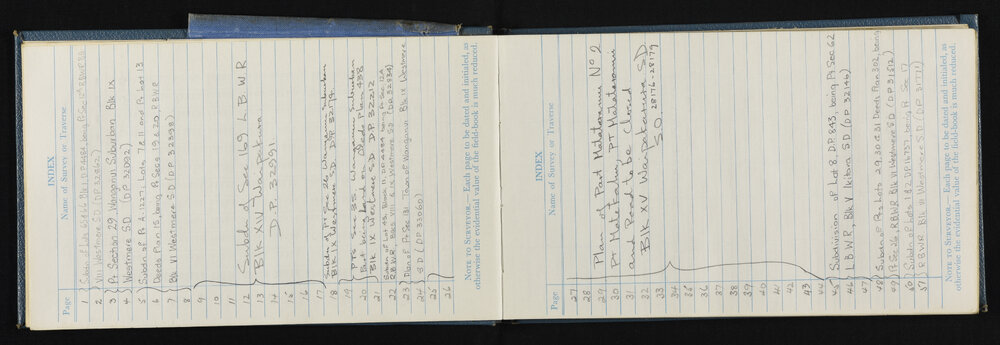 INDEX
Page Name of Survey or Traverse
1 Subdn of Lots
2 VIII Westmere SD (DP
3 Pt Section 29, Wanganui Suburban Blk IX
4 Westmere SD (DP 32002)
5 Subdn of Pt A 1227, Lots 7 & 11 and Pt Lot 13
6 Deeds Plan 15, being Pt Secs 19 & 20, RBWR
7 Blk VI Westmere SD (DP 32398)
8
9
10
11 Subdn of Sec 169 LBWR
12
13 Blk XIV Waipakura
14 D.P. 32991
15
16
17 Subdn of Pt Sec 26 Wanganui Suburban
18 Blk IX Westmere SD DP 32179
19 Pt Sec 35 Wanganui Suburban
20 Part being Land on Deeds Plan 438
21 Blk IX Westmere SD D.P. 32212
Subdn of Lot 43, Block II, DP 9484 being Pt Sec 12A
22 RBWR, Blks VIII & IX Westmere SD (DP 32834)
23 Plan of Pt Sec 131 Town of Wanganui Blk IX Westmere
24 SD (DP 33060)
25
26
NOTE TO SURVEYOR.—Each page to be dated and initialed, as
otherwise the evidential value of the field-book is much reduced.
INDEX
Page Name of Survey or Traverse
27
28 Plan of Part Matatera No 2
29
30 Pt
31 and Road to be Closed
32 Blk XV Waipakura SD
33 SO 28176-28179
34
35
36
37
38
39
40
41
42
43
44
45 Subdivision of Lot 8 D.P. 843, being Pt Sec 62
46 LBWR, Blk V Ikitara SD (DP 32146)
47
48 Subdn of Pts Lots 29, 30 & 31 Deeds Plan 302, being
49 Pt Sec RBWR Blk VI Westmere SD (DP 31612)
50 Subdn of Lots 1 & 2 DP 16737, being Pt Sec 17
51 RBWR Blk VI Westmere SD (DP 31771)
NOTE TO SURVEYOR.—Each page to be dated and initialed, as
otherwise the evidential value of the field-book is much reduced.